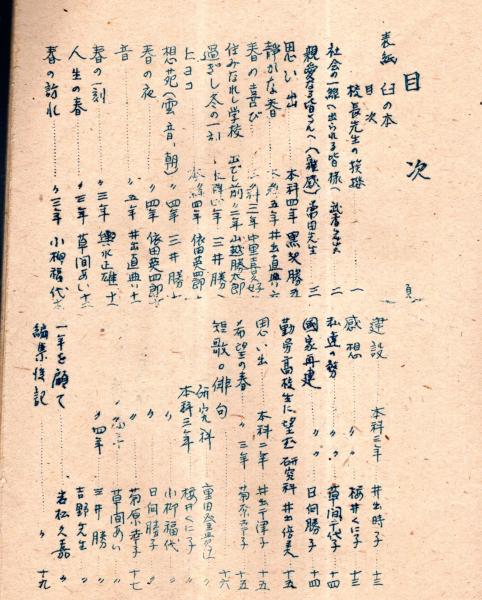 目次
表紙 臼の本
目次
校長先生の挨拶 一
社会の一線へ出られる皆様へ 二
親愛なる皆さんへ(雑感) 富田先生 三
思い出 本科四年 黒父勝 五
静かな春 五年 井出直典 六
春の喜び 三年 中里
住みなれし学校 出でし前 三年 山越勝太郎
過ぎし冬の一刻 三井勝
ヒヨコ 四年 依田英四郎
想苑(雲、音、朝) 〃四年 三井勝
春の夜 〃四年 依田英四郎
音 〃五年 井出直典 十一
春の一刻 〃三年 正雄 十一
人生の春 〃三年 草間あい 十二
春の訪れ 〃三年 小柳福代
頁
建設 本科二年 井出時子 十三
感想 〃 桜井くに子 十三
私達の努 〃 草間千代子 十四
國家再建 〃 日向勝子 十四
勤労高校生に望む 研究科 井出倍美 十五
思い出 本科二年 井出千津子 十五
希望の春 〃三年 菊原幸子 十五
短歌。俳句 十六
研究科 重田
本科三年 桜井くに子 〃
〃 小柳福代 〃
〃 日向勝子 〃
〃 菊原幸子 十七
草間あい 〃
〃四年 三井勝 〃
一年を顧て 吉野先生 〃
編集後記 若松久嘉 十九